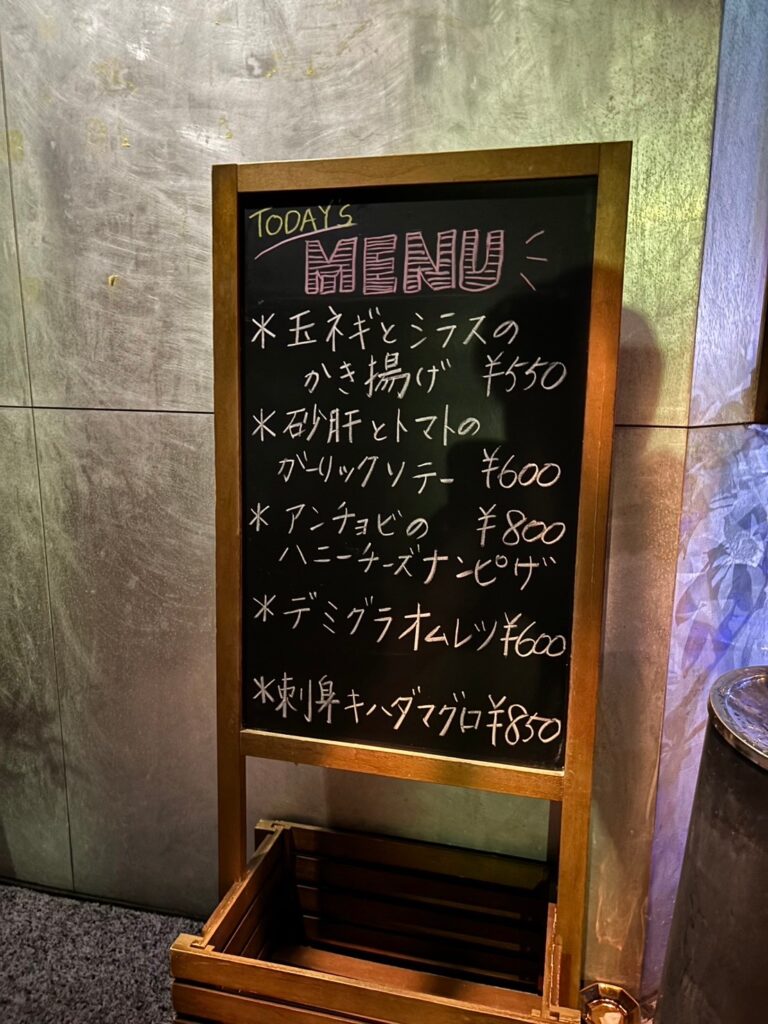 TODAY'S
MENU
*玉ネギとシラスの
かき揚げ ¥550
*砂肝とトマトの
ガーリックソテー ¥600
*アンチョビの ¥800
ハニーチーズナンピザ
*デミグラオムレツ ¥600
*刺身キハダマグロ ¥850